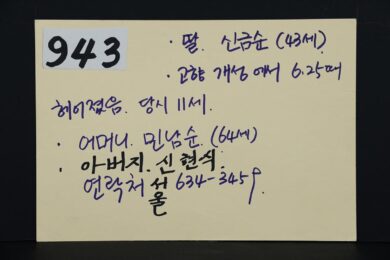 943
· 딸. 신금순 (43세).
· 고향 개성에서 6.25때
헤어졌음. 당시 11세.
· 어머니. 민남순. (64세)
· 아버지. 신현식.
연락처 서울 634-3459.